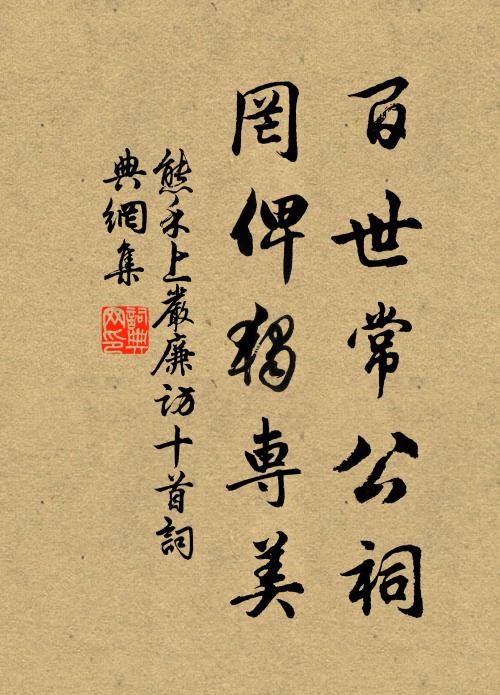 百世常公祠
罔俾獨專美
熊禾上嚴廉訪十首詞
典網集
詞典网印